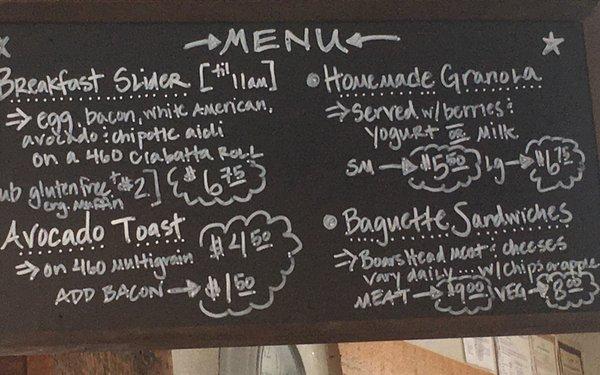 MENU
Breakfast Slider ['til 11am]
⇒ egg, bacon, white American,
avocado & chipotle aioli
on a 460 Ciabatta Roll
sub gluten free eng. muffin +$2] $6.75
Avocado Toast $4.50
⇒ on 460 Multigrain
ADD BACON → $1.50
Homemade Granola
⇒ Served w/ berries &
yogurt or milk
SM → $5.50 Lg → $6.75
Baguette Sandwiches
⇒ Boars Head meat & cheeses
vary daily w/ chips or apple
MEAT → $9.00 VEG → 8.00